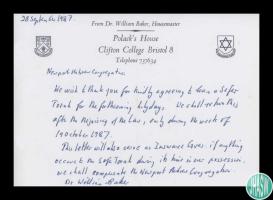 28 September 1987.
From Dr. William Baker, Housemaster
Polack's House
Clifton College Bristol 8
Telephone 737634
Newport Hebrew Congregation
We wish to thank you for kindly agreeing to loan a Sefer
Torah for the forthcoming holydays. We shall return this
after the Rejoicing of the Law, early during the week of
19 October 1987.
This letter will also serve as Insurance Cover: if anything
occurs to the Sefer Torah during its time in our possession,
we shall compensate the Newport Hebrew Congregation.
Dr William Baker